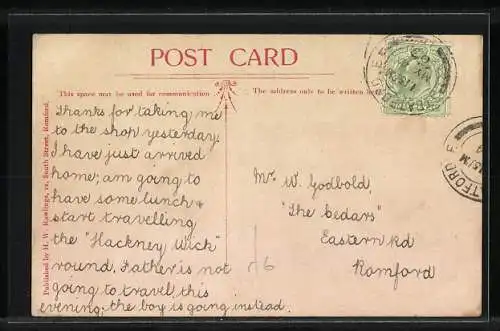 POST CARD
This space may be used for communication
The address only to be written here
Thanks for taking me
to the shop yesterday.
I have just arrived
home; am going to
have some lunch &
start travelling
the "Hackney Wick"
round. Father is not
going to travel this
evening; the boy is going instead.
Mr W. Godbold,
"The Cedars"
Eastern Rd
Romford
Published by H. W. Rawlings, South Street, Romford.